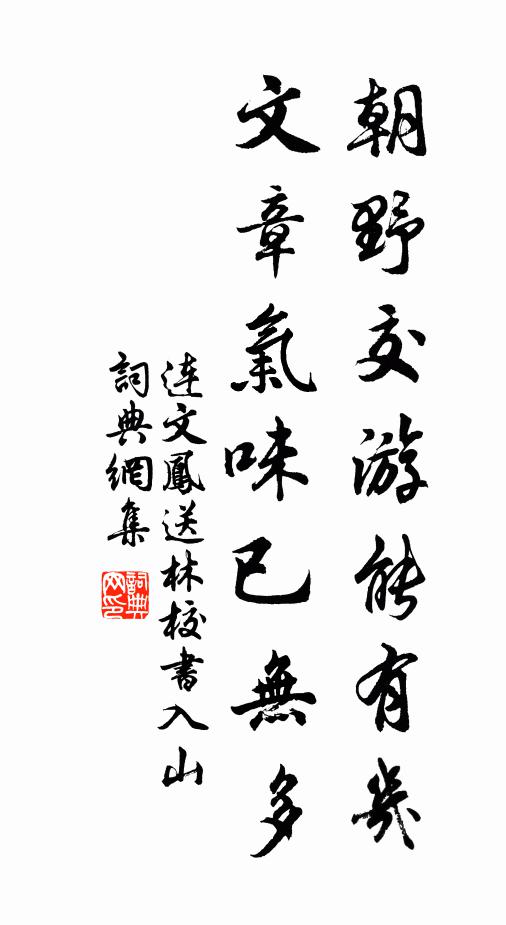 朝野交游能有幾
文章氣味已無多
連文鳳送林校書入山
詞典網集
詞典網印